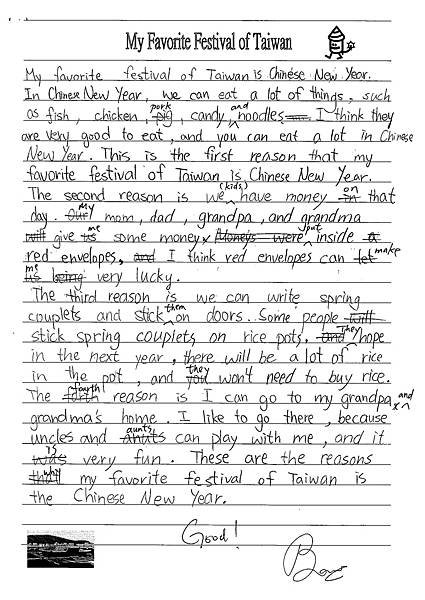 My Favorite Festival of Taiwan
My favorite festival of Taiwan is Chinese New Year.
In Chinese New Year, we can eat a lot of things, such
as fish, chicken, pig pork, candy and noodles. I think they
are very good to eat, and you can eat a lot in Chinese
New Year. This is the first reason that my
favorite festival of Taiwan is Chinese New Year.
The second reason is we (kids) have money in on that
day. Our My mom, dad, grandpa, and grandma
will give us me some money, Money's were put inside a
red envelopes, and I think red envelopes can let make
us me being very lucky.
The third reason is we can write spring
couplets and stick them on doors. Some people will
stick spring couplets on rice pots, and They hope
in the next year, there will be a lot of rice
in the pot, and you they won't need to buy rice.
The forth fourth reason is I can go to my grandpa and
grandma's home. I like to go there, because
uncles and ahuts aunts can play with me, and it
was is very fun. These are the reasons
that why my favorite festival of Taiwan is
the Chinese New Year.
Good!